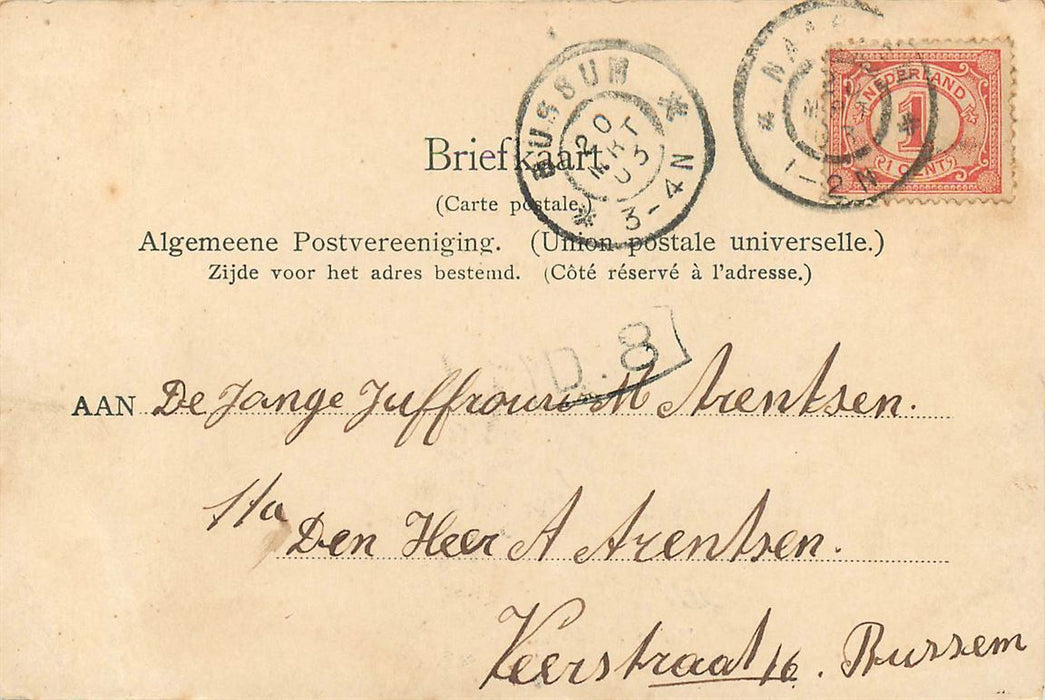 BUSSUM
20
MRT
03
3-4N
1-2N
NEDERLAND
1
(1 CENT)
Briefkaart.
(Carte postale.)
Algemeene Postvereeniging. (Union postale universelle.)
Zijde voor het adres bestemd. (Côté réservé à l'adresse.)
D. 8
AAN De Jange Juffrouw M Arentsen.
Den Heer A Arentsen.
Veerstraat 16. Bussem